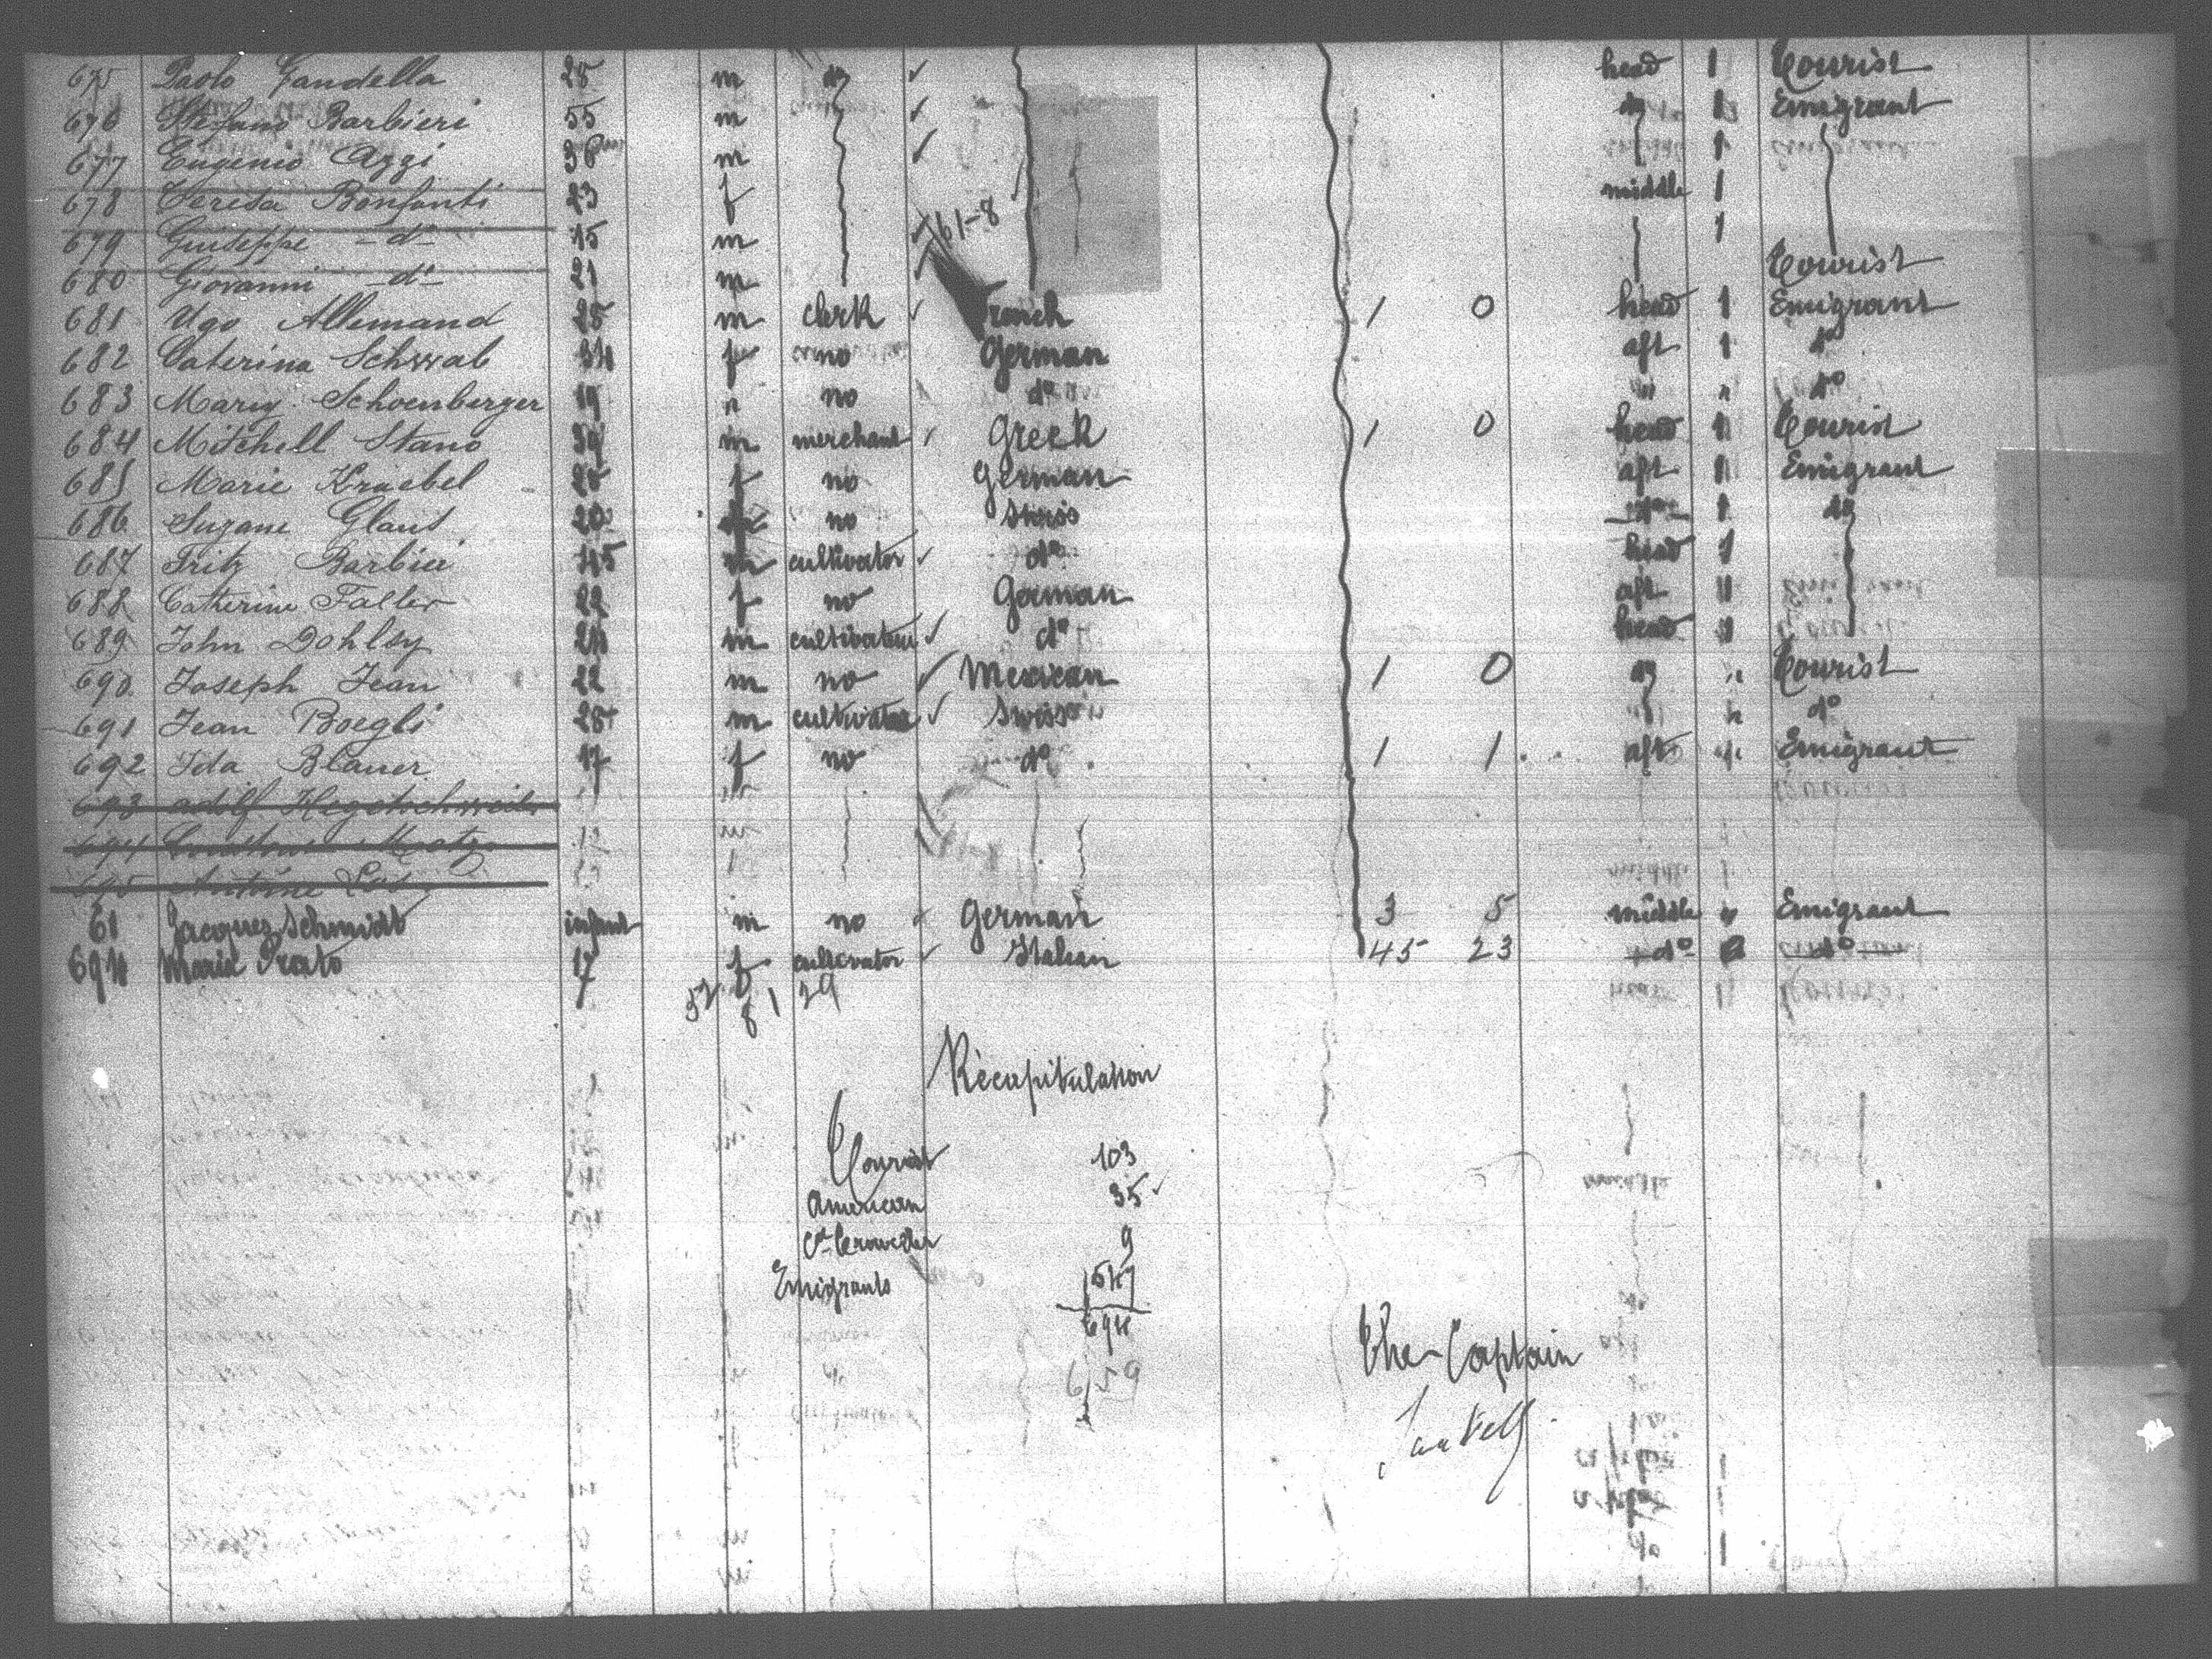 675 Paolo Gandella 25 m do ✓ head 1 Tourist
676 Stefano Barbieri 55 m ✓ do 1 Emigrant
677 Eugenio Azzi 36 m ✓ 1
678 Teresa Bonfanti 23 f middle 1
679 Giuseppe - do - 15 m ✓ 161-8 1
680 Giovanni - do - 21 m ✓ Tourist
681 Ugo Allemand 25 m clerk ✓ French 1 0 head 1 Emigrant
682 Caterina Schwab 34 f no German aft 1 do
683 Mary Schoenberger 19 " no do " " do
684 Mitchell Stano 39 m merchant ✓ Greek 1 0 head 1 Tourist
685 Marie Kraebel 25 f no German aft 1 Emigrant
686 Suzane Glaus 20 f no Swiss do 1 do
687 Fritz Barbier 45 m cultivator ✓ do head 1
688 Catherine Faller 22 f no German aft
689 John Dohlsy 24 m cultivateur ✓ do head
690 Joseph Jean 22 m no ✓ Mexican 1 0 do " Tourist
691 Jean Boegli 28 m cultivator ✓ Swiss " do
692 Ida Blauer 17 f no do 1 1 aft " Emigrant
693 Adolf Hegetschweiler
694
695 Antoine
61 Jacques Schmidt infant m no ✓ German 3 5 middle " Emigrant
694 Maria Prato 17 f cultivator ✓ Italian 45 23 do do
52 8 1 29
Récapitulation
Tourist 103
American 35 ✓
9
Emigrants 547
694
659
The Captain